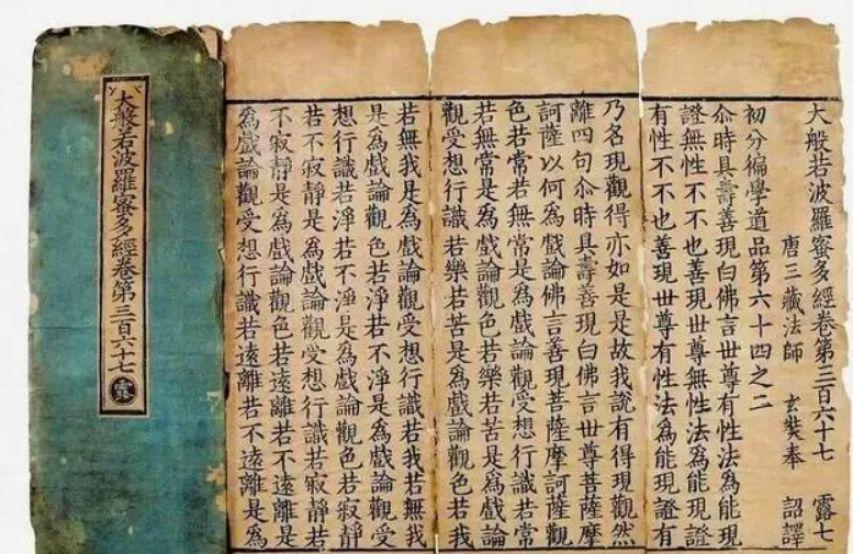 大般若波羅蜜多經卷第三百六十七 露七
唐三藏法師 玄奘奉 詔譯
初分徧學道品第六十四之二
尒時具壽善現白佛言世尊有性法爲能現
證無性不不也善現世尊無性法爲能現證
有性不不也善現世尊有性法爲能現證有
乃名現觀得亦如是是故我說有得現觀然
離四句尒時具壽善現白佛言世尊菩薩摩
訶薩以何爲戲論佛言善現菩薩摩訶薩觀
色若常若無常是爲戲論觀受想行識若常
若無常是爲戲論觀色若樂若苦是爲戲論
觀受想行識若樂若苦是爲戲論觀色若我
若無我是爲戲論觀受想行識若我若無我
是爲戲論觀色若淨若不淨是爲戲論觀受
想行識若淨若不淨是爲戲論觀色若寂靜
若不寂靜是爲戲論觀受想行識若寂靜若
不寂靜是爲戲論觀色若遠離若不遠離是
爲戲論觀受想行識若遠離若不遠離是爲
大般若波羅蜜多經卷第三百六十七 露